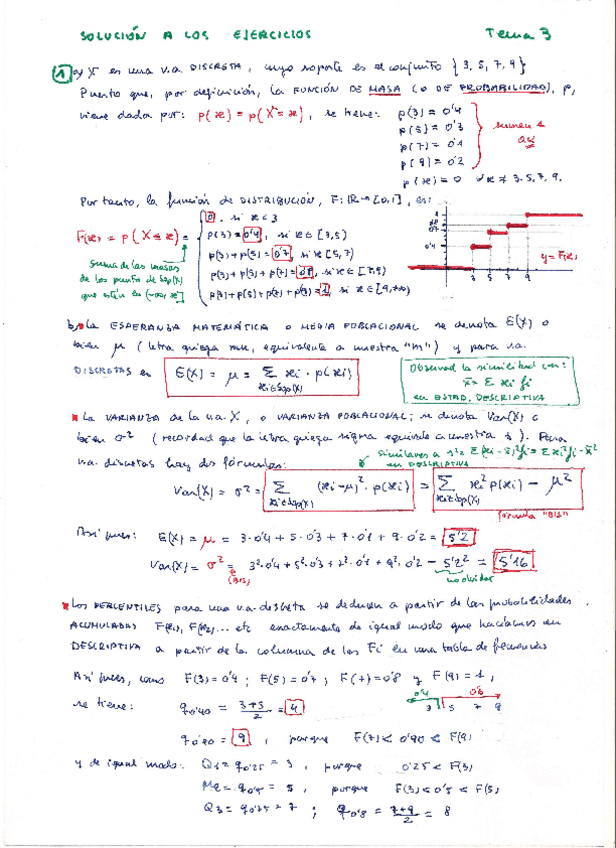 SOLUCIÓN A LOS EJERCICIOS Tema 3
1 a) X es una v.a. DISCRETA, cuyo soporte es el conjunto {3, 5, 7, 9}
Puesto que, por definición, la FUNCIÓN DE MASA (O DE PROBABILIDAD), p,
viene dada por: p(x) = p(X=x), se tiene: p(3) = 0'4
p(5) = 0'3
p(7) = 0'1
p(9) = 0'2
suman 1
p(x) = 0 ∀x ≠ 3, 5, 7, 9.
Por tanto, la función de DISTRIBUCIÓN, F: ℝ → [0,1], es:
F(x) = p(X ≤ x) =
0, si x < 3
p(3) = 0'4, si x ∈ [3,5)
p(3) + p(5) = 0'7, si x ∈ [5,7)
p(3) + p(5) + p(7) = 0'8, si x ∈ [7,9)
p(3) + p(5) + p(7) + p(9) = 1, si x ∈ [9,+∞)
suma de las masas
de los puntos de Sop(X)
que estén en (-∞, x]
1
0'8
0'7
0'4
3 5 7 9
y = F(x)
b) La ESPERANZA MATEMÁTICA O MEDIA POBLACIONAL se denota E(X) o
bien μ (letra griega mu, equivalente a nuestra "m") y para v.a.
DISCRETAS es E(X) = μ = Σ xi · p(xi)
xi∈Sop(X)
Observad la similitud con:
x̄ = Σ xi fi
en ESTAD. DESCRIPTIVA
La VARIANZA de la v.a. X, o VARIANZA POBLACIONAL, se denota Var(X) o
bien σ² (recordad que la letra griega sigma equivale a nuestra s). Para
v.a. discretas hay dos fórmulas:
similares a s² = Σ(xi - x̄)² fi = Σ xi² fi - x̄²
en DESCRIPTIVA
Var(X) = σ² = Σ (xi - μ)² · p(xi) = Σ xi² p(xi) - μ²
xi∈Sop(X) xi∈Sop(X)
fórmula
Así pues: E(X) = μ = 3·0'4 + 5·0'3 + 7·0'1 + 9·0'2 = 5'2
Var(X) = σ² = 3²·0'4 + 5²·0'3 + 7²·0'1 + 9²·0'2 - 5'2² = 5'16
no olvidar
Los PERCENTILES para una v.a. discreta se deducen a partir de las probabilidades
ACUMULADAS F(x1), F(x2)... etc exactamente de igual modo que hacíamos en
DESCRIPTIVA a partir de la columna de los Fi en una tabla de frecuencias
Así pues, como F(3) = 0'4; F(5) = 0'7; F(7) = 0'8 y F(9) = 1,
0'4 0'6
3 5 7 9
se tiene: q0'40 = 3+5/2 = 4
q0'90 = 9, porque F(7) < 0'90 < F(9)
y de igual modo: Q1 = q0'25 = 3, porque 0'25 < F(3)
Me = q0'5 = 5, porque F(3) < 0'5 < F(5)
Q3 = q0'75 = 7; q0'8 = 7+9/2 = 8